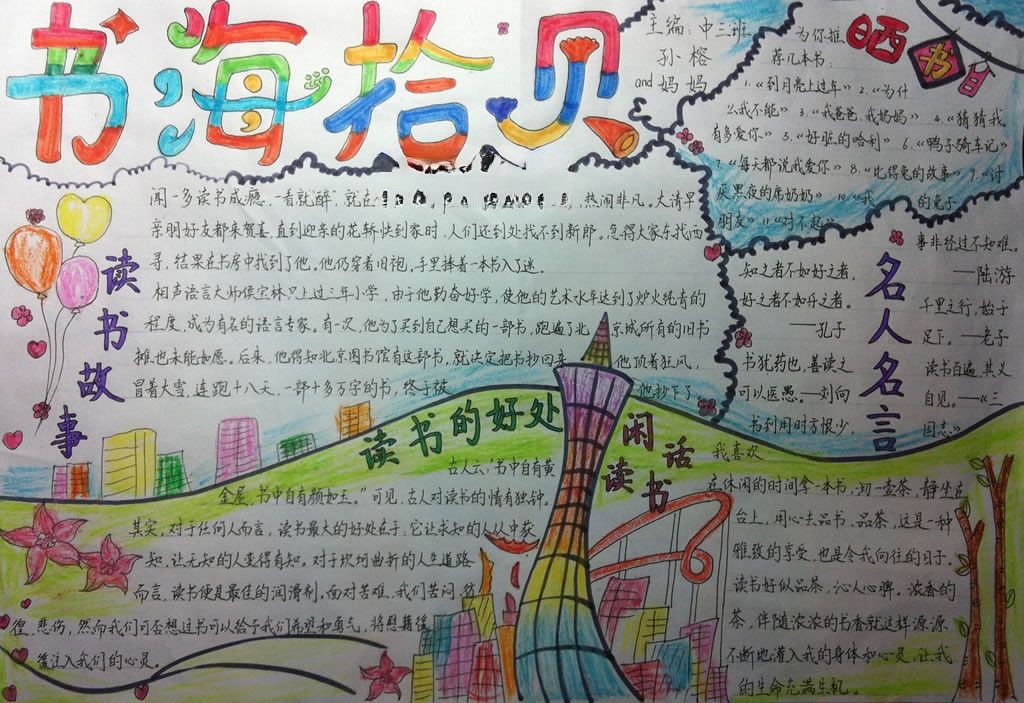 书海拾贝
主编：中三班
孙榕
and 妈妈
晒书目
为你推
荐几本书：
1.《到月亮上过年》 2.《为什
么我不能》 3.《我爸爸，我妈妈》 4.《猜猜我
有多爱你》 5.《好脏的哈利》 6.《鸭子骑车记》
7.《每天都说我爱你》 8.《比得兔的故事》 9.《讨
厌黑夜的席奶奶》 10.《我的兔子
朋友》 11.《对不起》
读书故事
闻一多读书成瘾，一看就醉，就在 热闹非凡。大清早
亲朋好友都来贺喜，直到迎亲的花轿快到家时，人们还到处找不到新郎。急得大家东找西
寻，结果在书房中找到了他。他仍穿着旧袍，手里捧着一本书入了迷。
相声语言大师侯宝林只上过三年小学，由于他勤奋好学，使他的艺术水平达到了炉火纯青的
程度，成为有名的语言专家。有一次，他为了买到自己想买的一部书，跑遍了北京城所有的旧书
摊也未能如愿。后来，他得知北京图书馆有这部书，就决定把书抄回来。他顶着狂风，
冒着大雪，连跑十八天，一部十多万字的书，终于被他抄下了。
名人名言
知之者不如好之者，
好之者不如乐之者。
——孔子
书犹药也，善读之
可以医愚。——刘向
书到用时方恨少，
事非经过不知难。
——陆游
千里之行，始于
足下。——老子
读书百遍，其义
自见。——《三
国志》
读书的好处
古人云：“书中自有黄
金屋，书中自有颜如玉。”可见，古人对读书的情有独钟。
其实，对于任何人而言，读书最大的好处在于：它让求知的人从中获
知，让无知的人变得有知。对于坎坷曲折的人生道路
而言，读书便是最佳的润滑剂。面对苦难，我们苦闷、彷
徨、悲伤，然而我们可否想过书可以给予我们希望和勇气，将慰藉缓
缓注入我们的心灵。
闲话读书
我喜欢
在休闲的时间拿一本书，沏一壶茶，静坐在
台上，用心去品书、品茶，这是一种
雅致的享受，也是令我向往的日子。
读书好似品茶，沁人心脾。浓香的
茶，伴随浓浓的书香就这样源源
不断地灌入我的身体和心灵，让我
的生命充满生机。